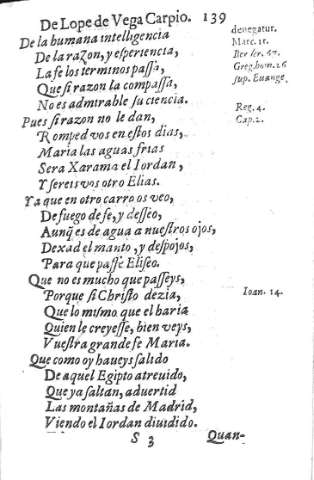 De Lope de Vega Carpio. 139
De la humana intelligencia
De la razon, y esperiencia,
La fe los terminos passa,
Que si razon la compassa,
No es admirable su ciencia.
Pues si razon no le dan,
Romped vos en estos dias,
Maria las aguas frias
Sera Xarama el Iordan,
Y sereis vos otro Elias.
Ya que en otro carro os veo,
De fuego de fe, y desseo,
Aunq̃ es de agua a nuestros ojos,
Dexad el manto, y despojos,
Para que passe Eliseo.
Que no es mucho que passeys,
Porque si Christo dezia,
Que lo mismo que el haria
Quien le creyesse, bien veys,
Vuestra grande fe Maria.
Que como oy haueys salido
De aquel Egipto atreuido,
Que ya saltan, aduertid
Las montañas de Madrid,
Viendo el Iordan diuidido.
S 3 Quan-
denegatur.
Marc. 11.
Ber ser. 57.
Greg. hom. 26
sup. Euange.
Reg. 4.
Cap. 2.
Ioan. 14.